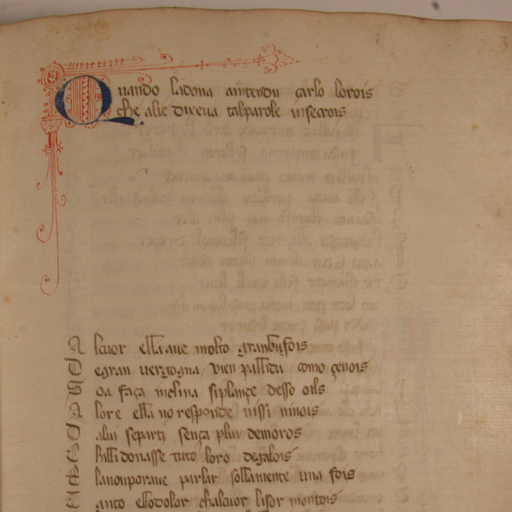 Quando ladona aintendu carlo lorois
che alie diceua talparole insecrois
A lcuor ella aue molto granbusois
D egran uergogna uien pallida como genois
S oa faça inclina siplançe desso oils
A lore ella no responde nissi ninois
D alui separti sença plui demoros
S killi donasse tuto loro degalois
E lanonporaue parlar sollamente una fois
T anto ellodolor chalcuor lisor montois